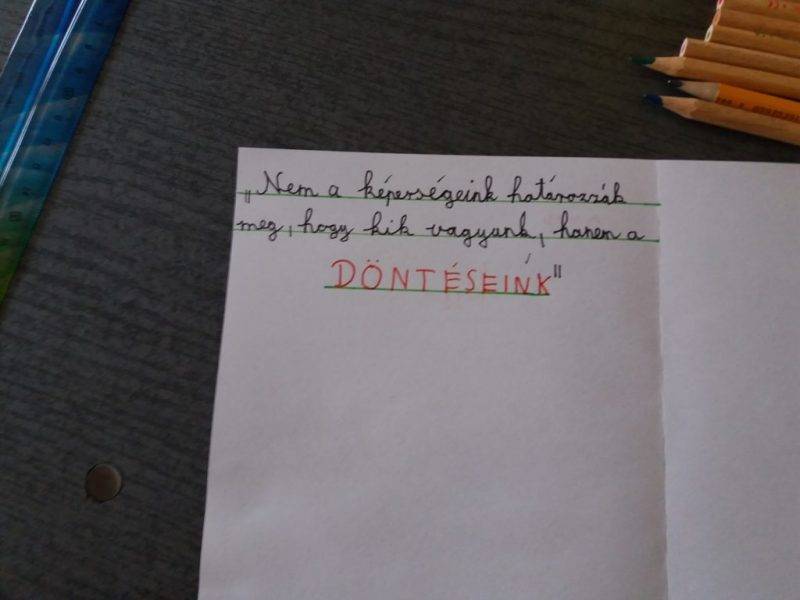 „Nem a képerségeink határozzák
meg, hogy kik vagyunk, hanem a
DÖNTÉSEINK"